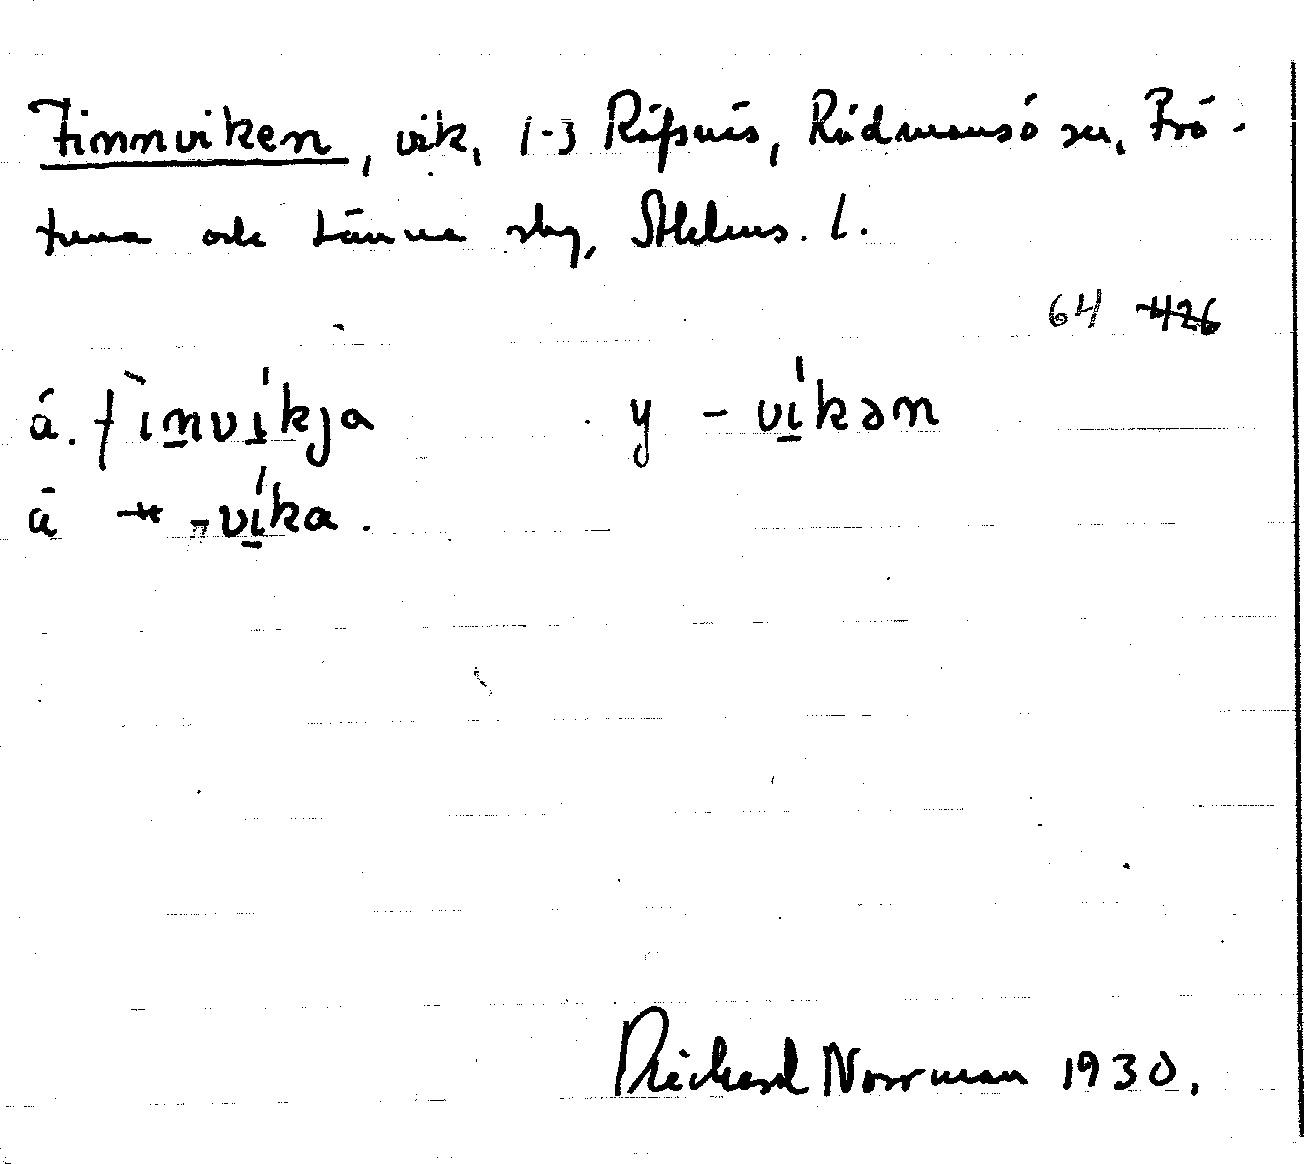 Finnviken, vik, 1-3 Räfsnäs, Rådmansö sn, Frö-
tuna och Länna slg, Sthlms. l.
64 426
å. fìnvíkja y -víkən
ä -víka.
Rickard Norrman 1930.